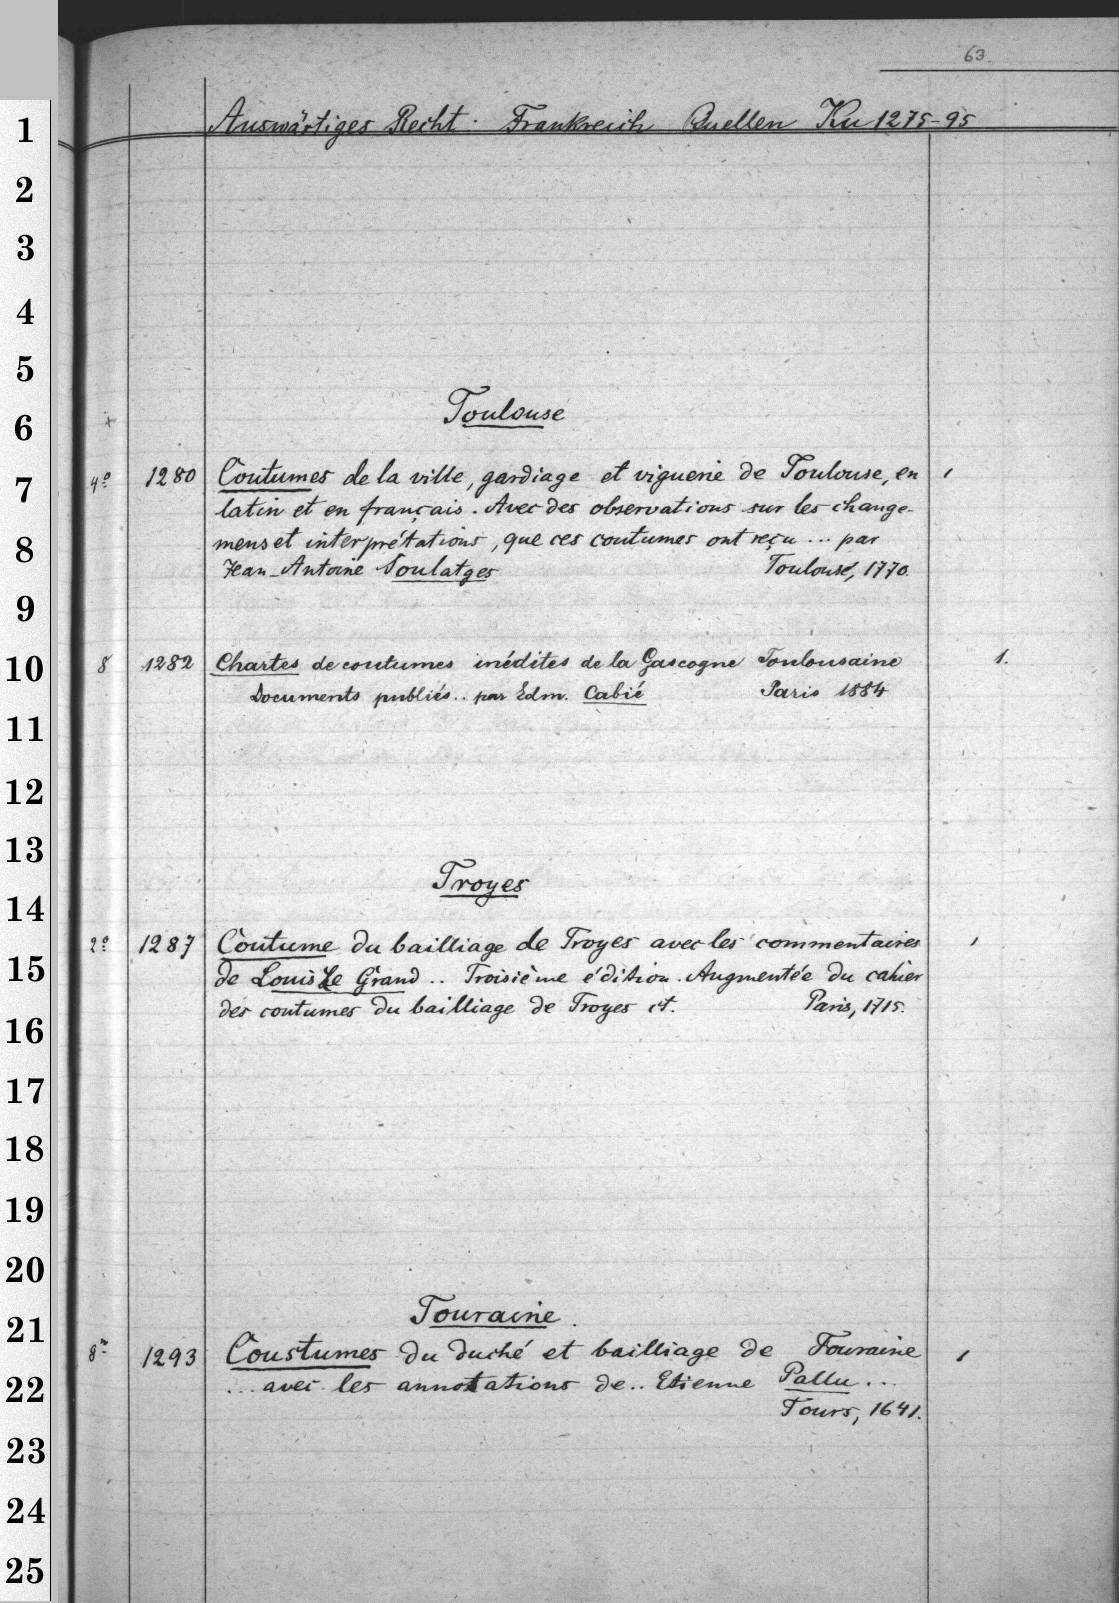 63.
Auswärtiges Recht. Frankreich Quellen Ku 1275-95
1
2
3
4
5
Toulouse
6
4º 1280 Coutumes de la ville, gardiage et viguerie de Toulouse, en
7
latin et en français. Avec des observations sur les change-
mens et interprétations, que ces coutumes ont reçu ... par
8
Jean-Antoine Soulatges Toulouse, 1770.
9
8 1282 Chartes de coutumes inédites de la Gascogne Toulousaine 1.
10
Documents publiés .. par Edm. Cabié Paris 1884
11
12
13
Troyes
14
2º 1287 Coutume du bailliage de Troyes avec les commentaires
15
de Louis Le Grand .. Troisième édition. Augmentée du cahier
des coutumes du bailliage de Troyes et. Paris, 1715.
16
17
18
19
20
Touraine.
21
8º 1293 Coustumes du duché et bailliage de Touraine
22
... avec les annotations de .. Etienne Pallu ...
Tours, 1641.
23
24
25